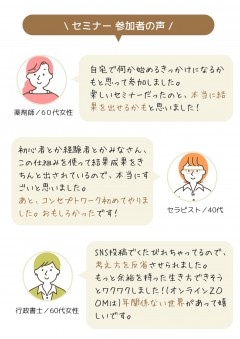 \ セミナー 参加者の声 /
自宅で何か始めるきっかけになるか
もと思って参加しました。
楽しいセミナーだったのと、本当に結
果を出せるかもと思いました！
薬剤師／60代女性
初心者とか経験者とかみなさん、
この仕組みを使って結果成果をき
ちんと出されているので、本当にす
ごいと思いました。
あと、コンセプトワーク初めてやりま
した。おもしろかったです！
セラピスト／40代
SNS投稿でくたびれちゃってるので、
考え方を反省させられました。
もっと余裕を持った生き方できそう
とワクワクしました！(オンラインZO
OMは1年関係ない世界があって嬉
しいです。
行政書士／60代女性